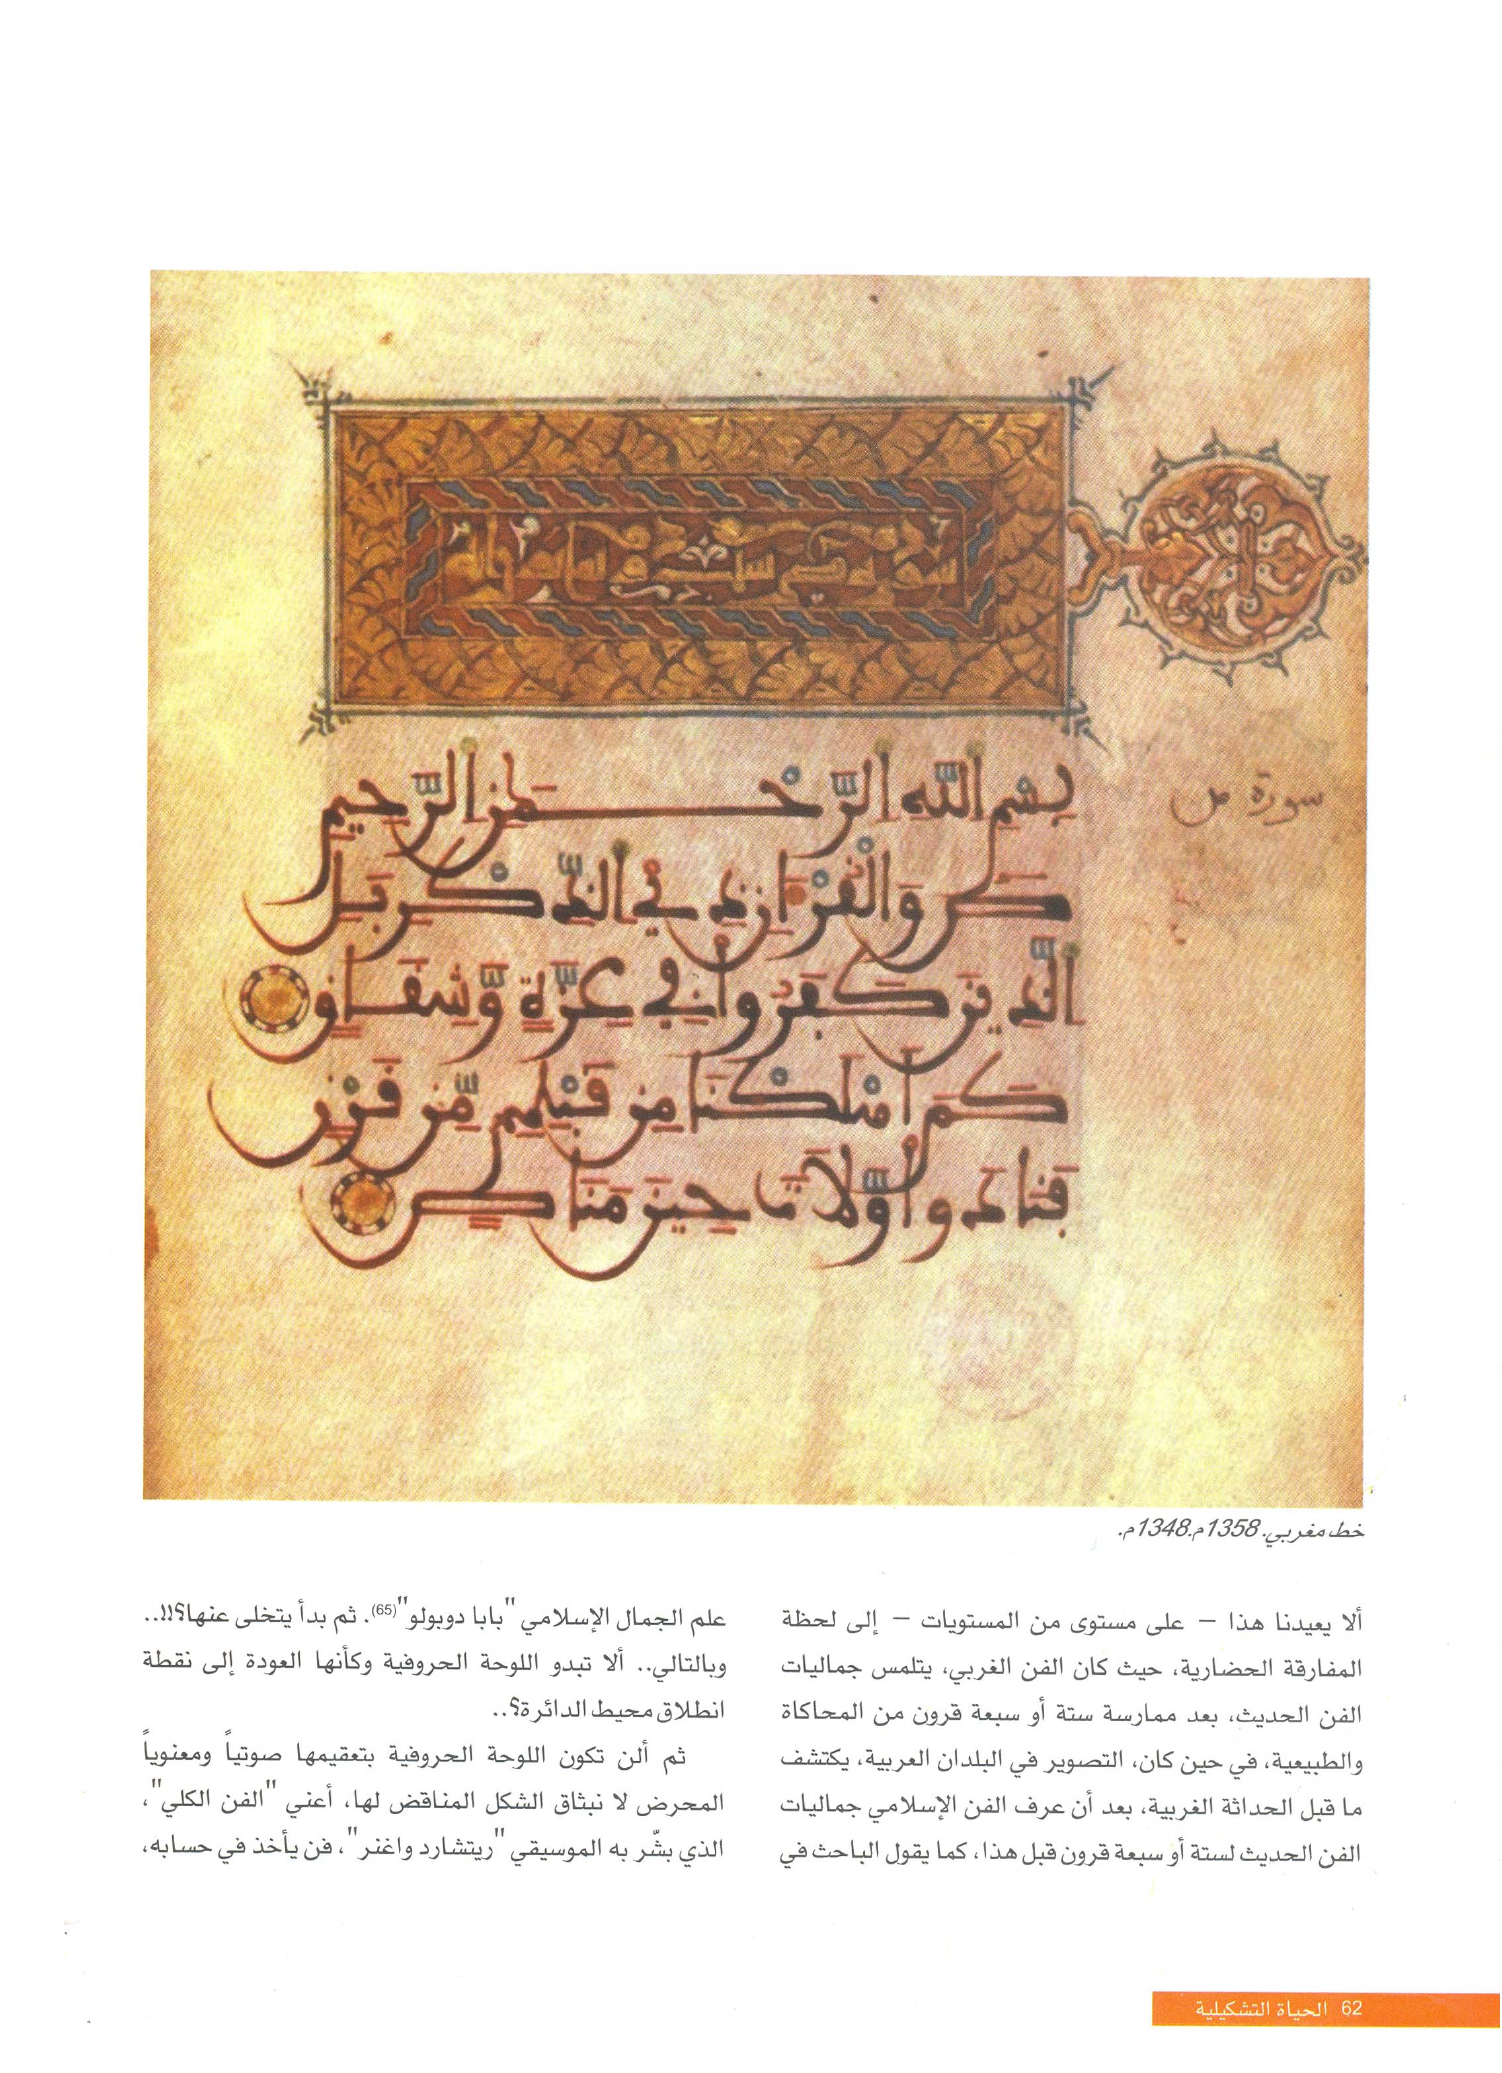 بِسْمِ اللَّهِ الرَّحْمَٰنِ الرَّحِيمِ
سورة ص
صَ وَالْقُرْءَانِ ذِي الذِّكْرِ بَلِ
الَّذِينَ كَفَرُوا فِي عِزَّةٍ وَّشِقَاقٍ
كَمَ اَهْلَكْنَا مِن قَبْلِهِم مِّن قَرْنٍ
فَنَادَوا وَّلَاتَ حِينَ مَنَاصٍ
خط مغربي. 1358م.1348م.
ألا يعيدنا هذا – على مستوى من المستويات – إلى لحظة
المفارقة الحضارية، حيث كان الفن الغربي، يتلمس جماليات
الفن الحديث، بعد ممارسة ستة أو سبعة قرون من المحاكاة
والطبيعية، في حين كان، التصوير في البلدان العربية، يكتشف
ما قبل الحداثة الغربية، بعد أن عرف الفن الإسلامي جماليات
الفن الحديث لستة أو سبعة قرون قبل هذا، كما يقول الباحث في
علم الجمال الإسلامي "بابا دوبولو"(65). ثم بدأ يتخلى عنها؟!!..
وبالتالي.. ألا تبدو اللوحة الحروفية وكأنها العودة إلى نقطة
انطلاق محيط الدائرة؟..
ثم ألن تكون اللوحة الحروفية بتعقيمها صوتياً ومعنوياً
المحرض لا نبثاق الشكل المناقض لها، أعني "الفن الكلي"،
الذي بشّر به الموسيقي "ريتشارد واغنر"، فن يأخذ في حسابه،
62 الحياة التشكيلية